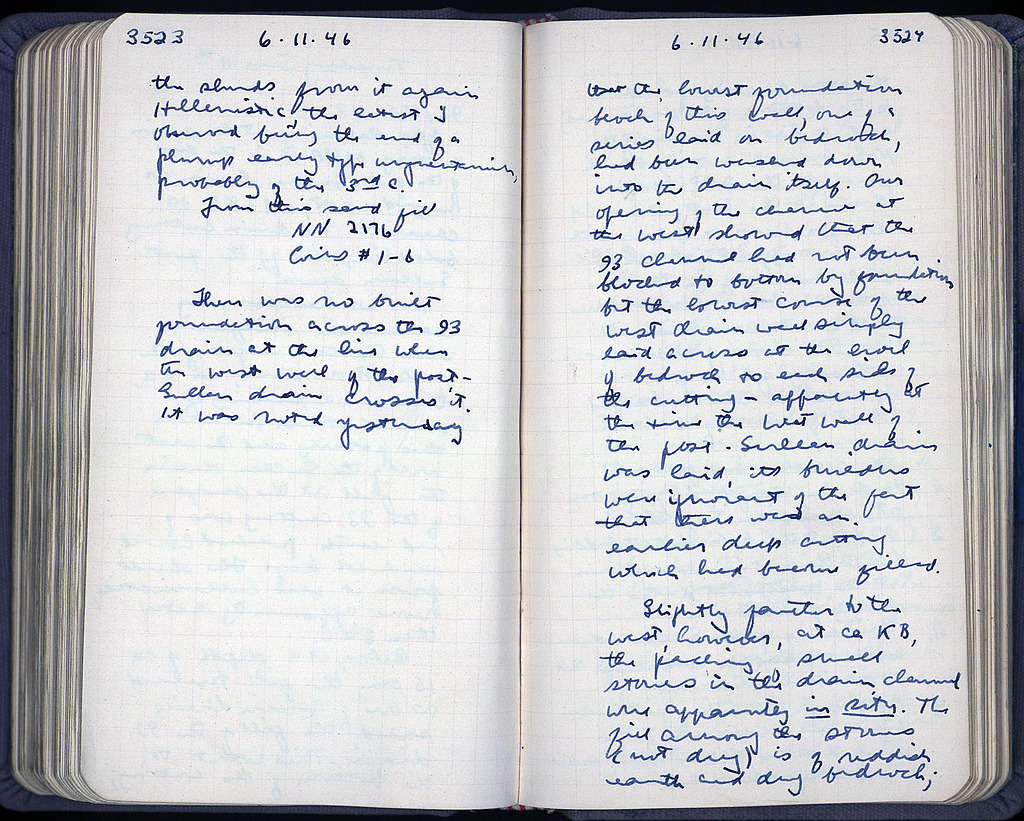 3523 6·11·46
the sherds from it again
Hellenistic, the latest I
observed being the end of a
plump early type unguentarium,
probably of the 3rd c.
From this sand fill
NN 2176
Coins #1-6
There was no built
foundation across the 93
drain at the line where
the west wall of the post-
Sullan drain crosses it.
It was noted yesterday
6·11·46 3524
that the lowest foundation
block of this wall, one of a
series laid on bedrock,
had been washed down
into the drain itself. Our
opening of the channel at
the west showed that the
93 channel had not been
blocked to bottom by foundations
but the lowest course of the
west drain wall simply
laid across at the level
of bedrock to each side of
the cutting – apparently at
the time the west wall of
the post-Sullan drain
was laid, its builders
were ignorant of the fact
that there was an
earlier deep cutting
which had become filled.
Slightly farther to the
west, however, at ca KB,
the packing of small
stones in the drain channel
were apparently in situ. The
fill among the stones
(not dug) is of reddish
earth and dug bedrock;